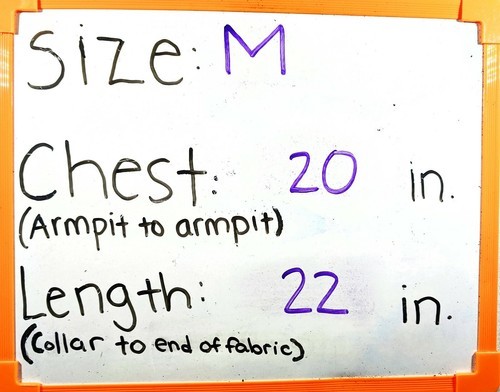 Size: M
Chest: 20 in.
(Armpit to armpit)
Length: 22 in.
(Collar to end of fabric)